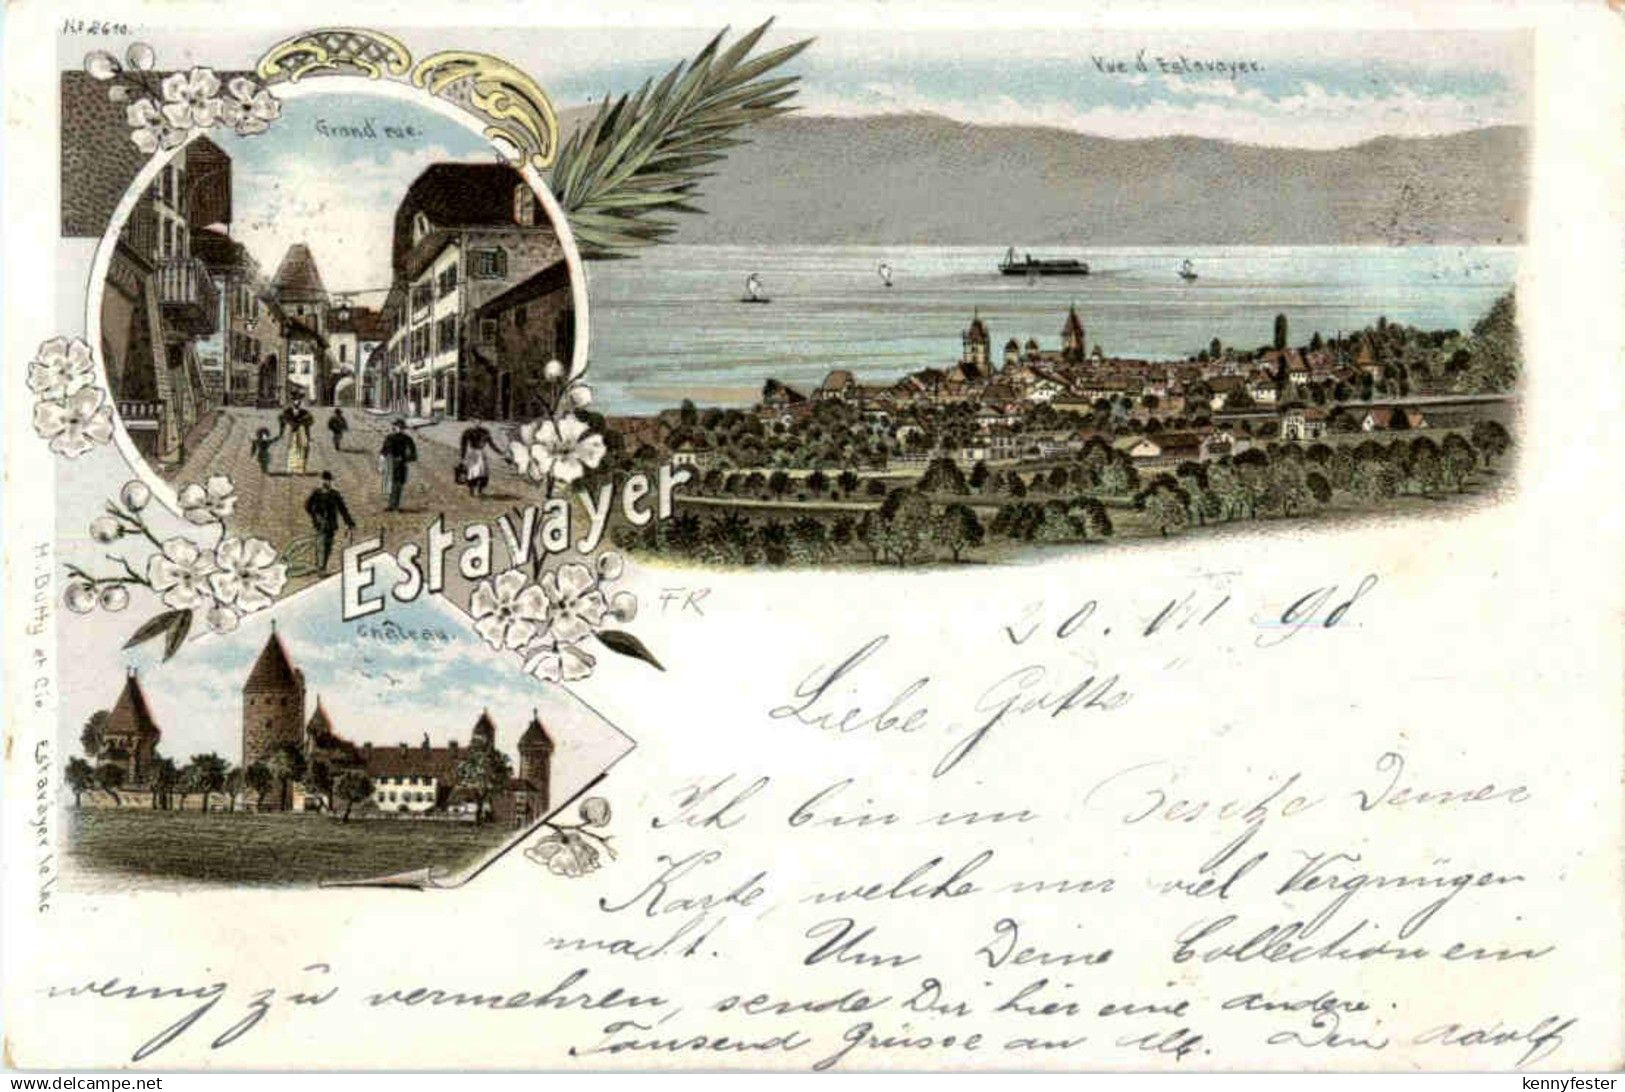 No 2610.
Grand' rue.
Vue d'Estavayer.
Estavayer
Château.
H. Butty et Cie. Estavayer le lac
FR
20. VII 98.
Liebe Gotte
Ich bin im Besitze Deiner
Karte, welche mir viel Vergnügen
macht. Um Deine Collection ein
wenig zu vermehren, sende Dir hier eine andere.
Tausend Grüsse an Alle. Dein Adolf
kennyfester